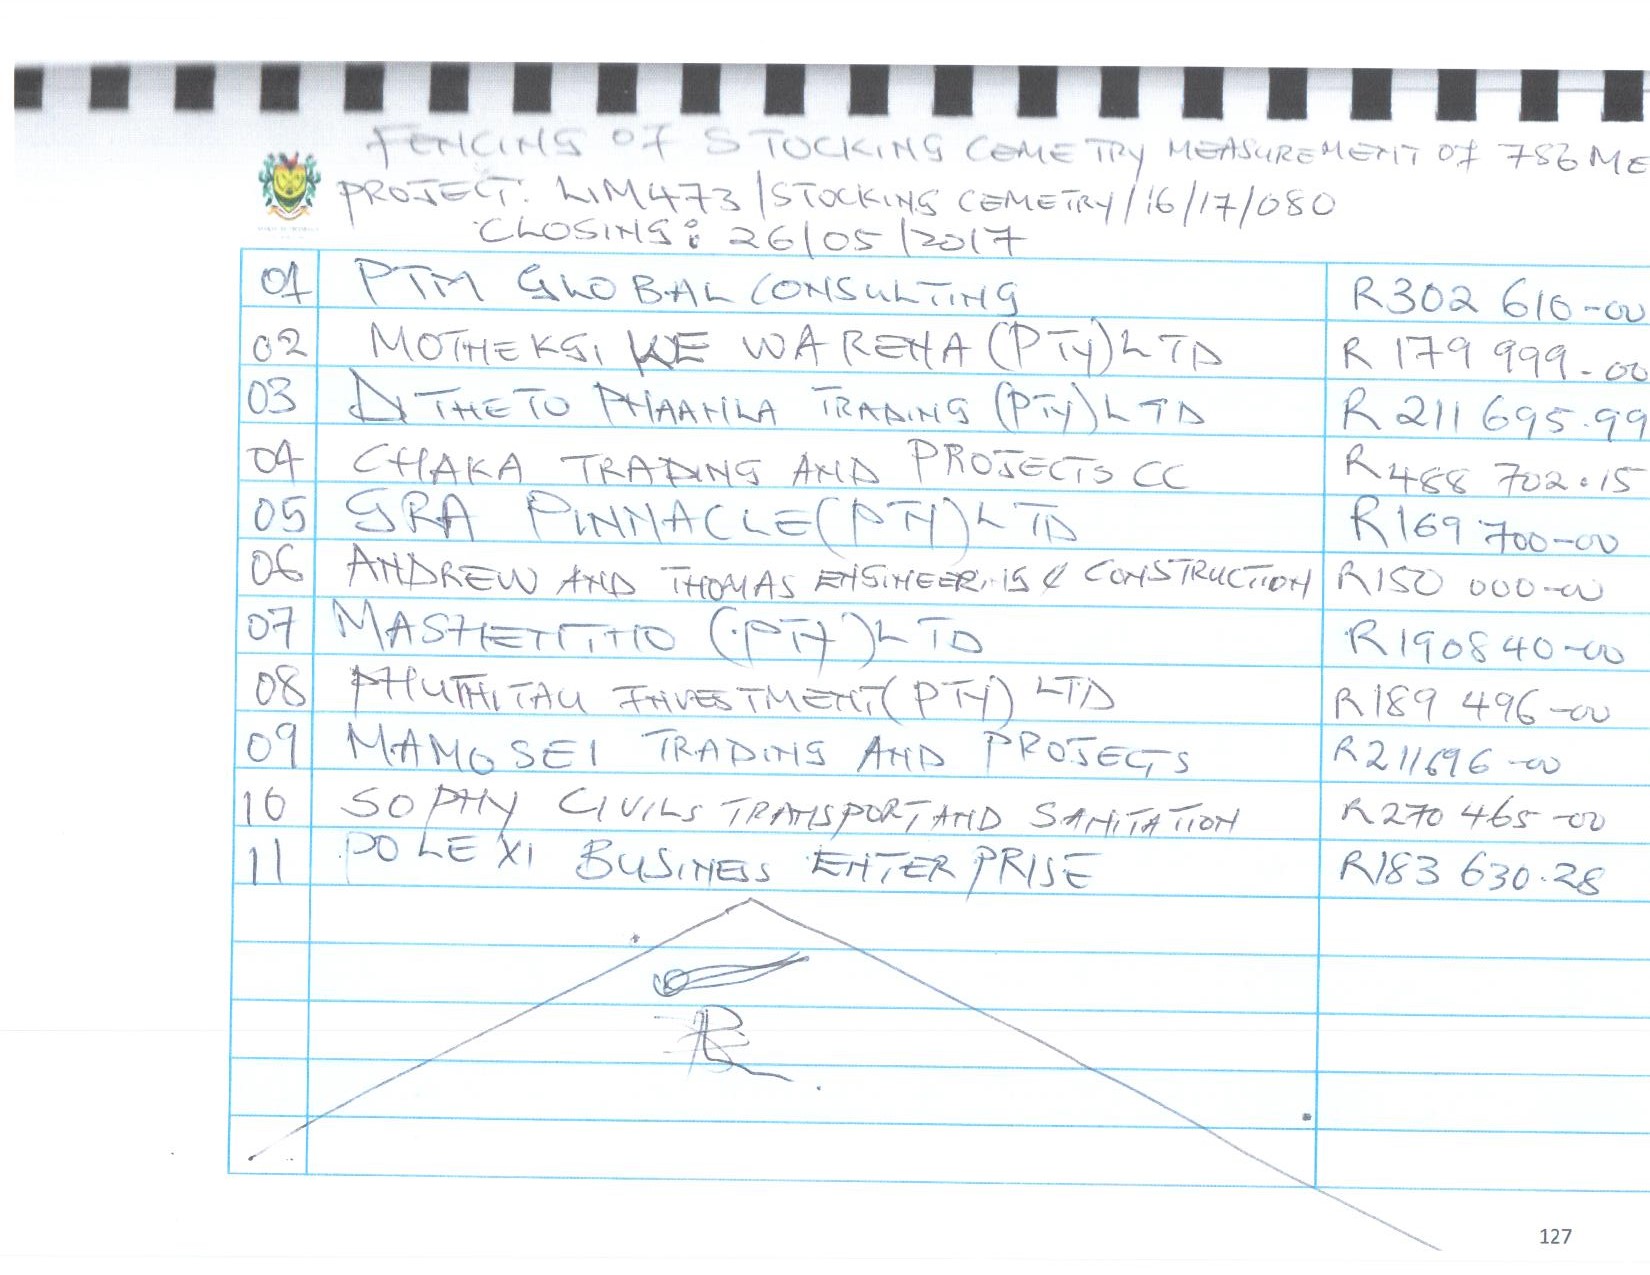 FENCING OF STOCKING CEMETRY MEASUREMENT OF 786 ME
PROJECT: LIM473/STOCKING CEMETRY/16/17/080
CLOSING: 26/05/2017
01 PTM GLOBAL CONSULTING R302 610-00
02 MOTHEKGI KE WARENA (PTY) LTD R 179 999-00
03 DITHETO PHAAHLA TRADING (PTY) LTD R 211 695.99
04 CHAKA TRADING AND PROJECTS CC R488 702.15
05 GRA PINNACLE (PTY) LTD R169 700-00
06 ANDREW AND THOMAS ENGINEERING & CONSTRUCTION R150 000-00
07 (PTY) LTD R190840-00
08 PHUTHITAU INVESTMENT (PTY) LTD R189 496-00
09 MAMOSEI TRADING AND PROJECTS R211696-00
10 SOPHY CIVILS TRANSPORT AND SANITATION R270 465-00
11 POLEXI BUSINESS ENTERPRISE R183 630.28
127